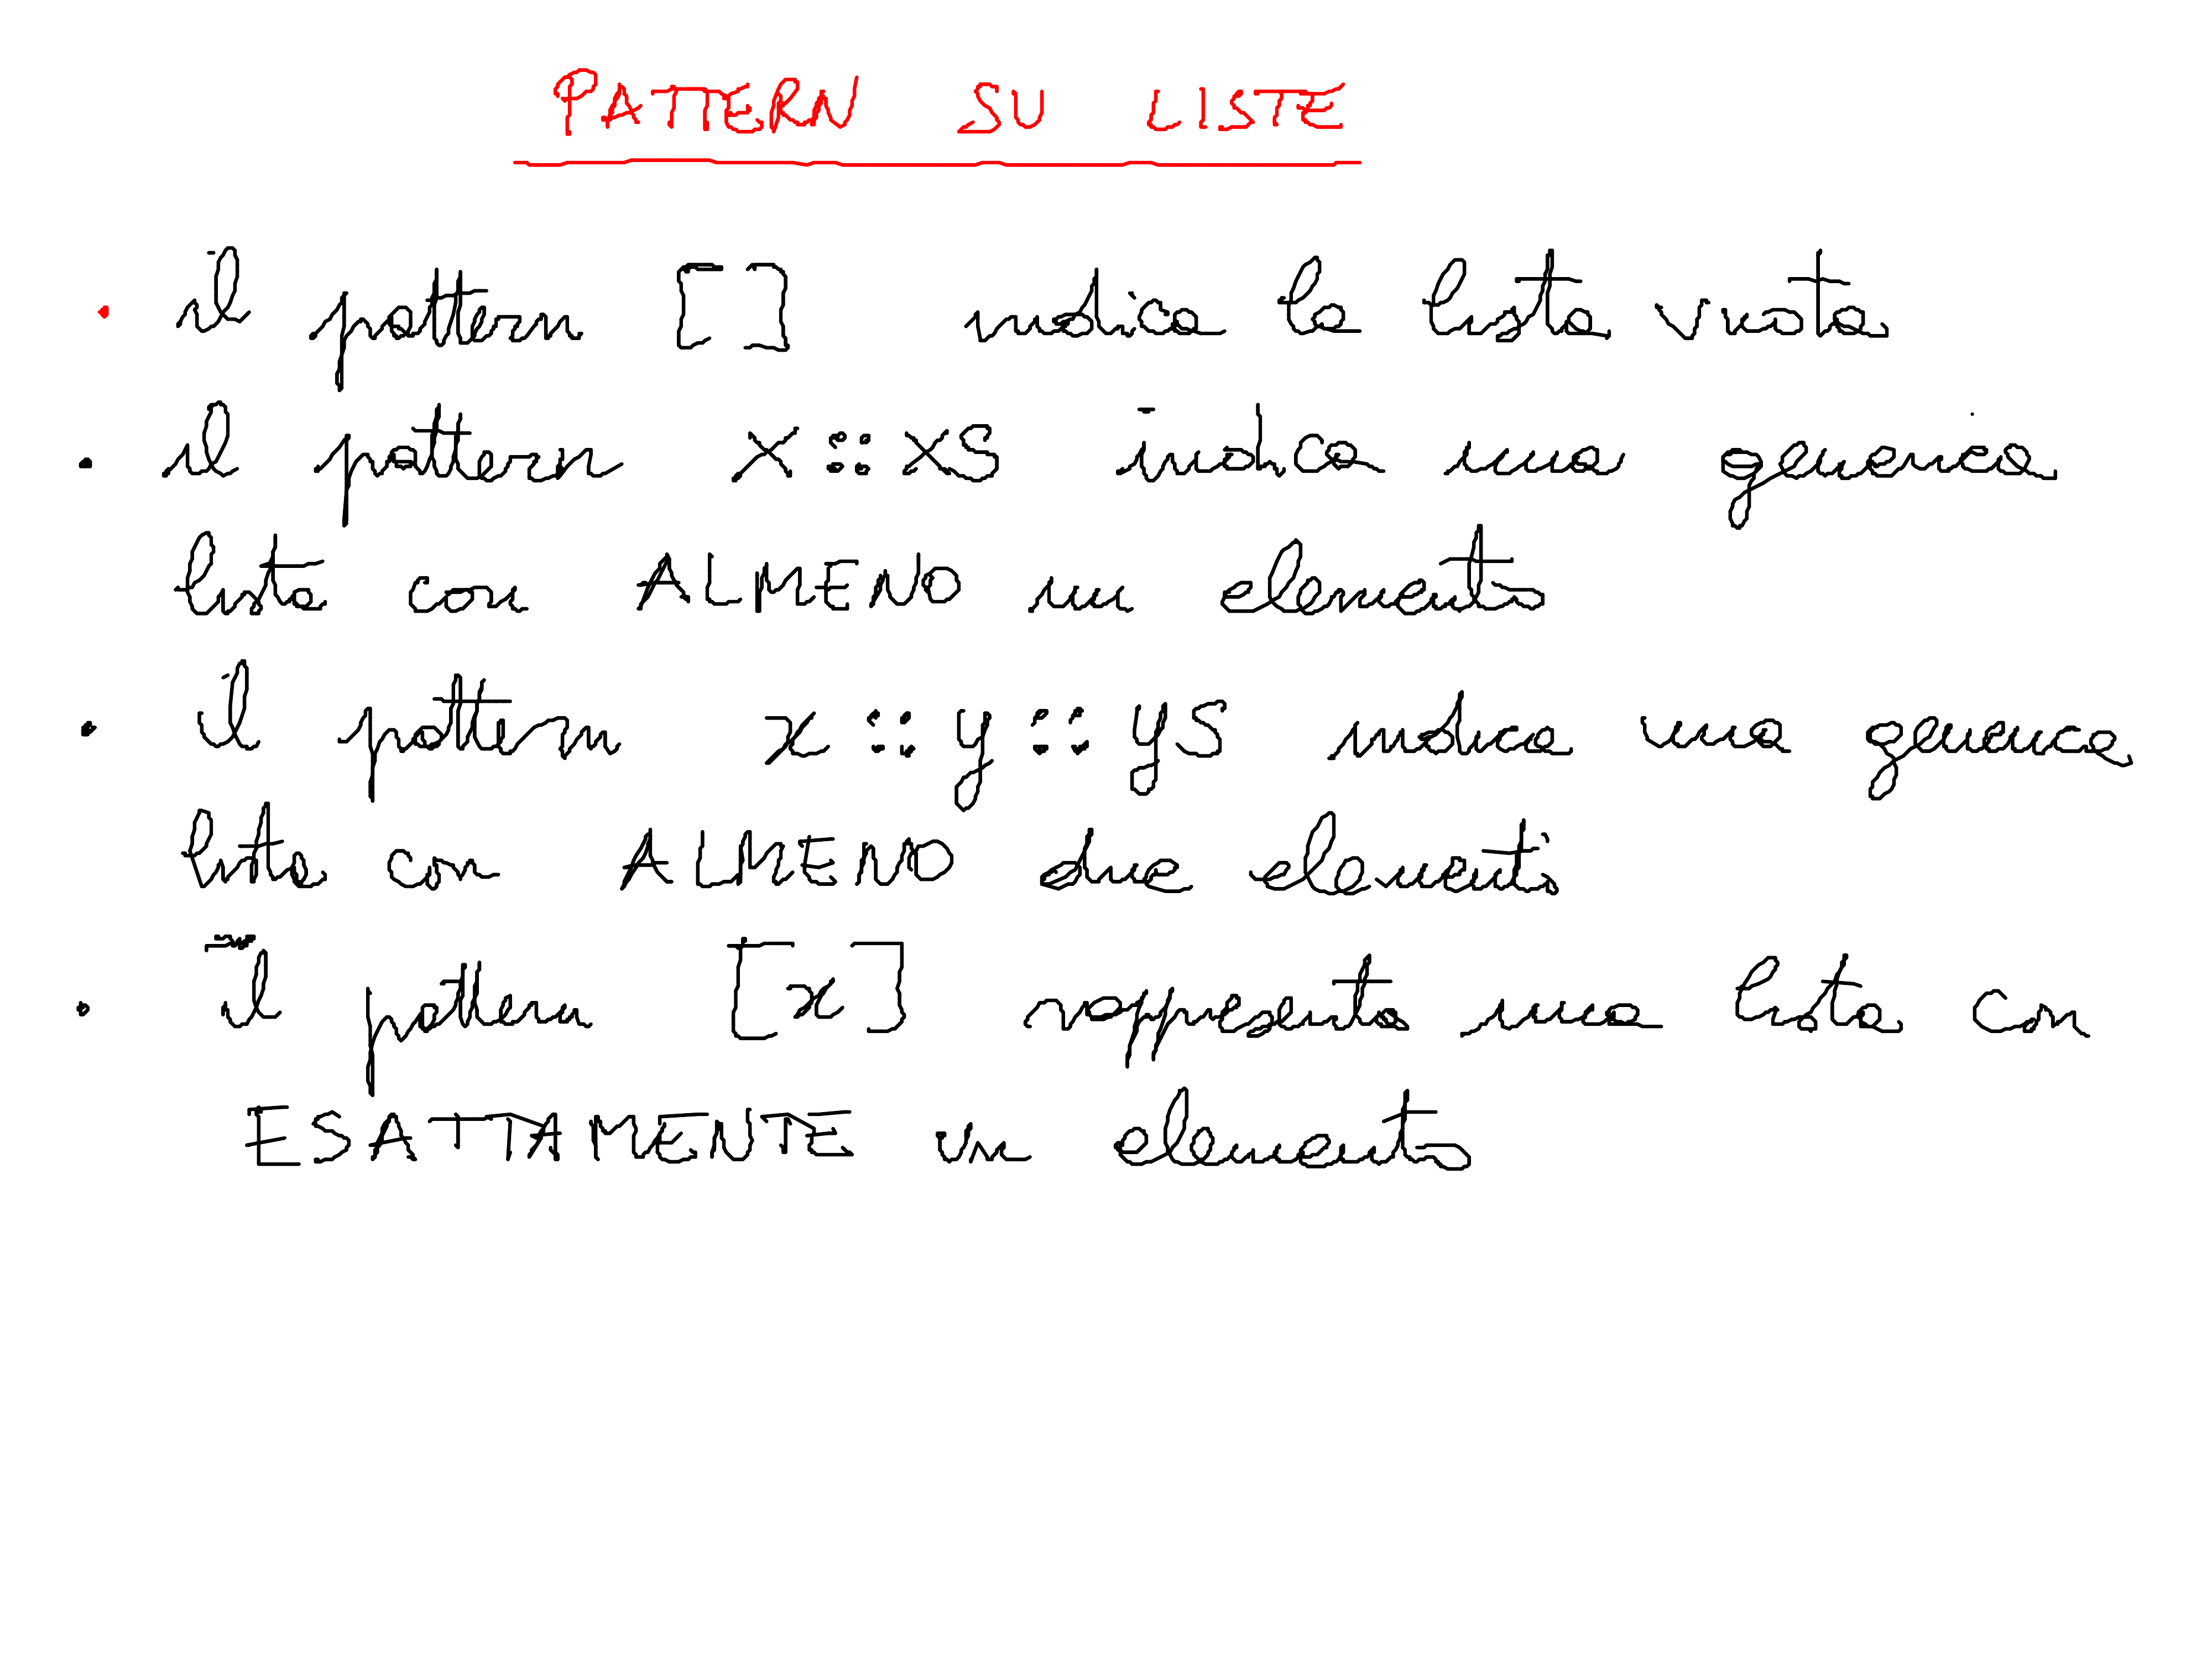 PATTERN SU LISTE
• il pattern [] indica la lista vuota
• il pattern x::xs indica una generica
lista con ALMENO un elemento
• il pattern x::y::ys indica una generica
lista con ALMENO due elementi
• il pattern [x] rappresenta una lista con
ESATTAMENTE un elemento